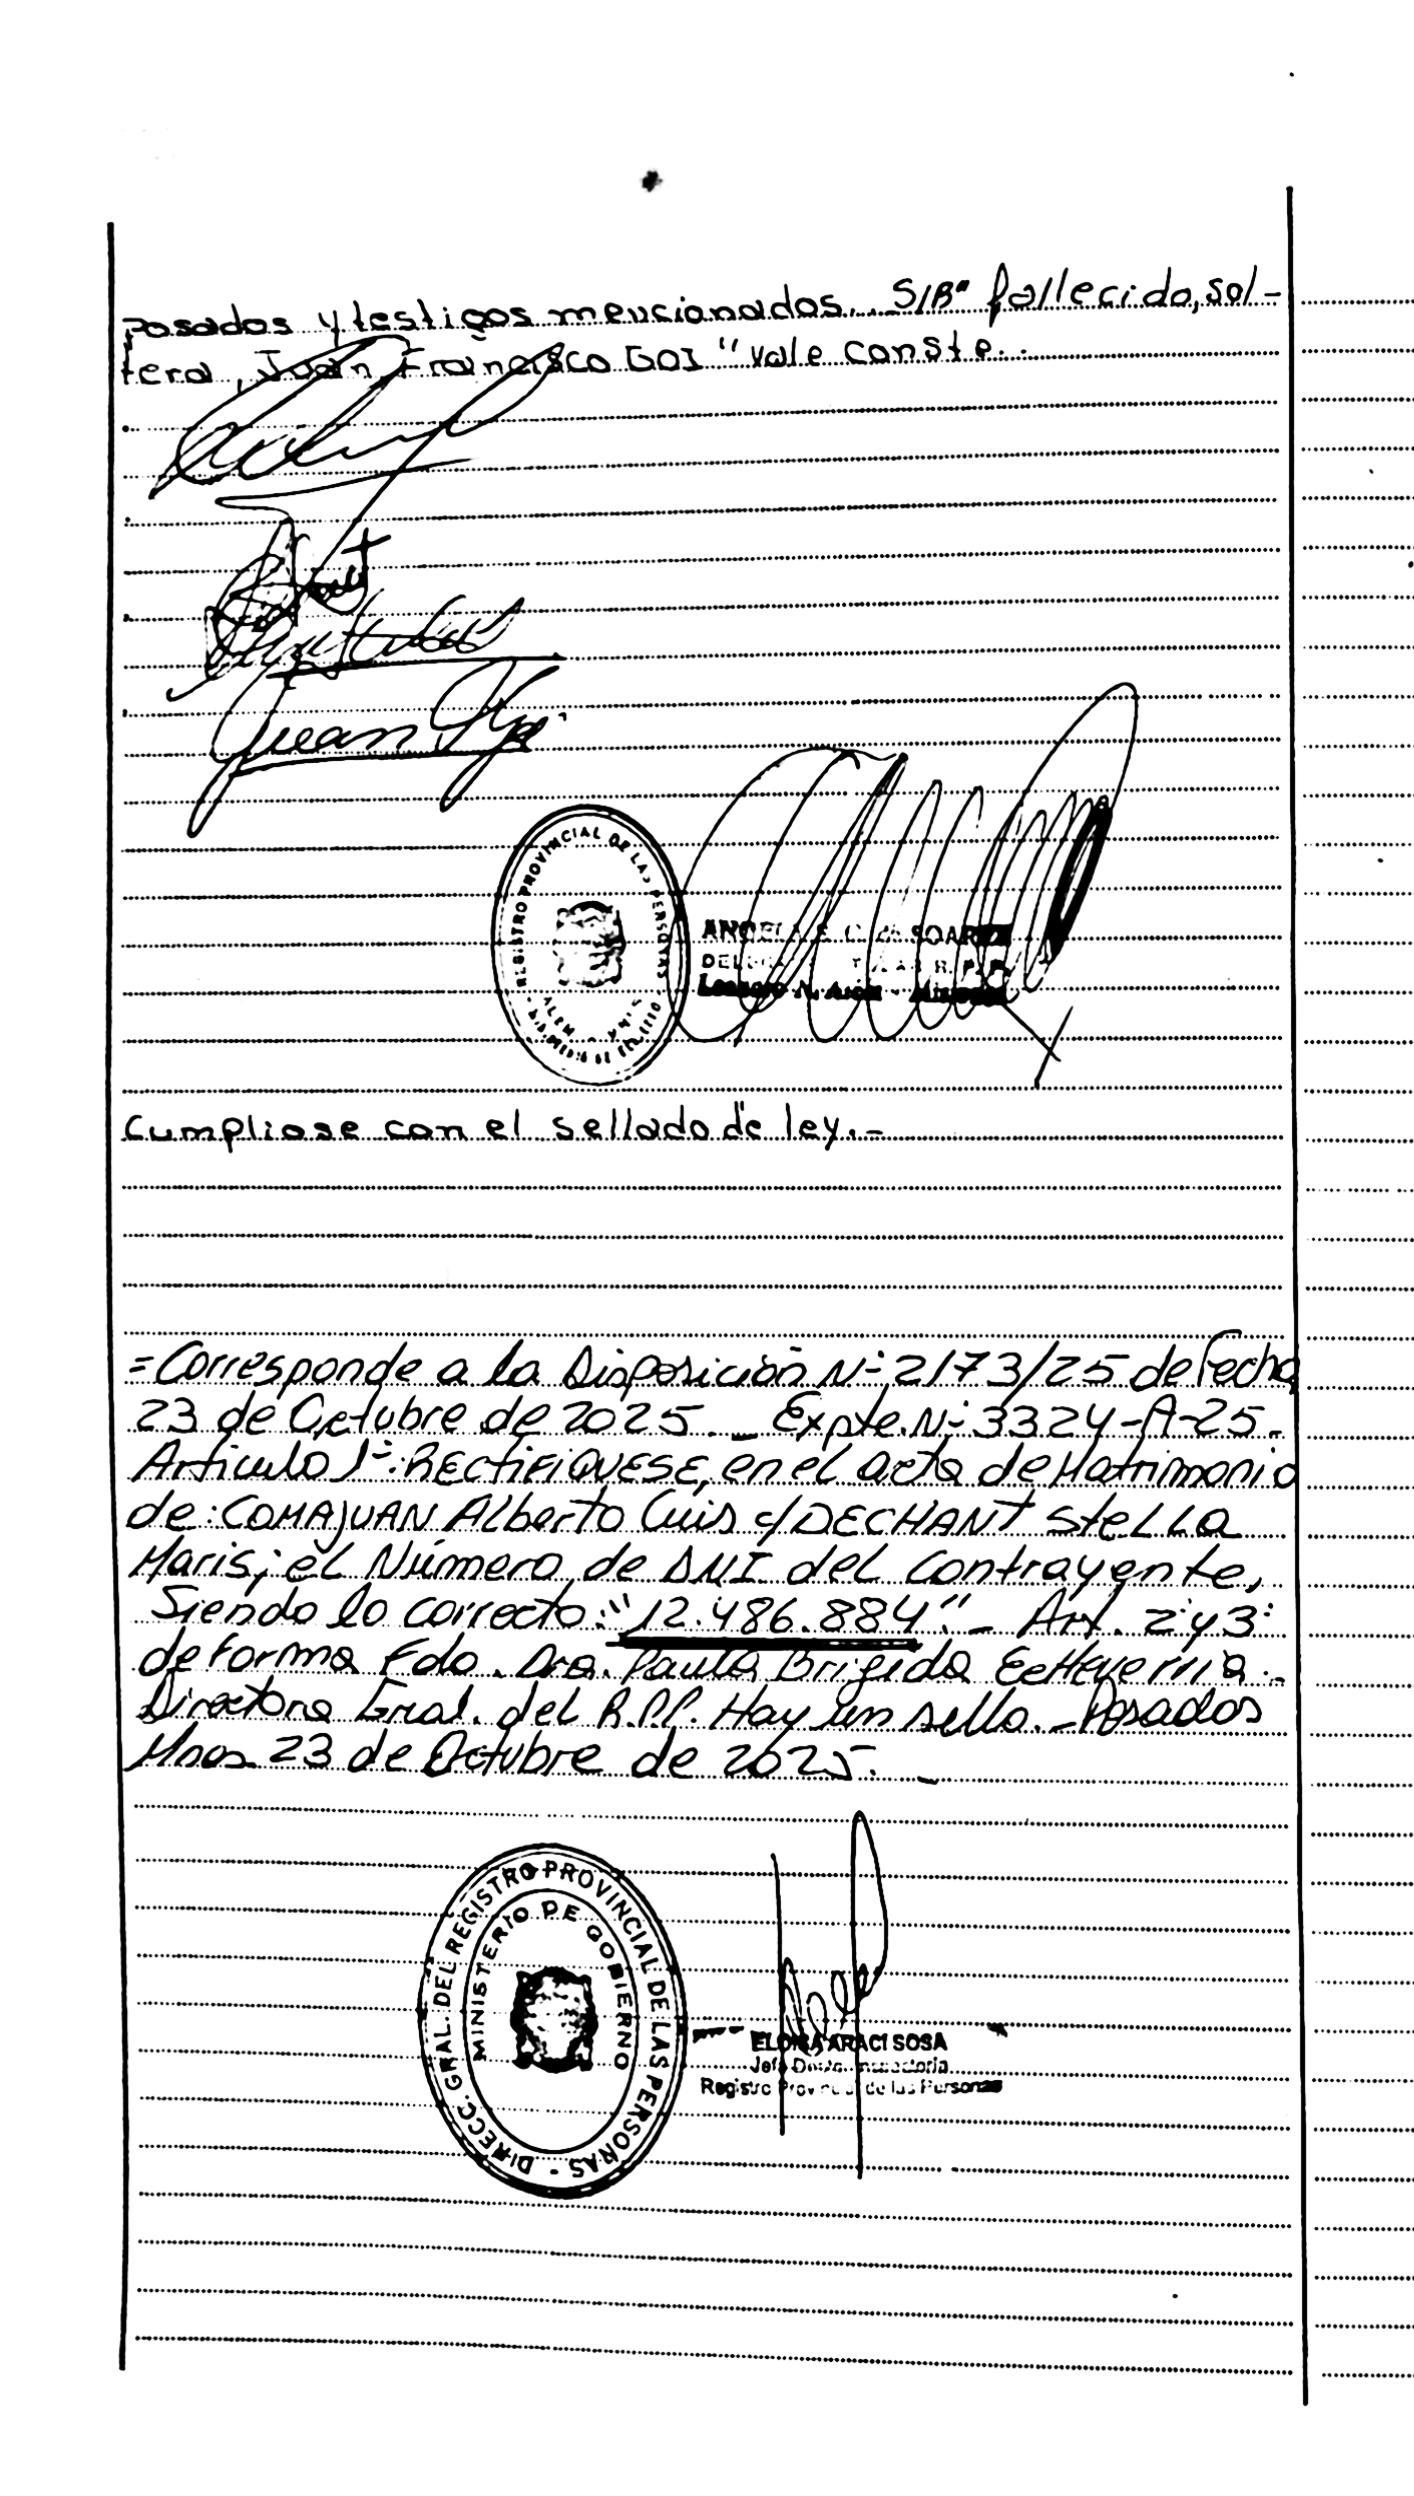 posados y testigos mencionados... S/Bº fallecido, sol-
tera, Juan Francisco GOI " Vale Conste..
Juan
REGISTRO PROVINCIAL DE LAS PERSONAS
ALEM
SOAREZ
Cumpliose con el sellado de ley.-
=Corresponde a la Disposición Nº 2173/25 de Fecha
23 de Octubre de 2025._ Expte.Nº 3324-A-25-
Articulo 1º: RECTIFIQUESE, en el acta de Matrimonio
de: COMAJUAN Alberto Luis c/ DECHANT Stella
Maris; el Número de DNI del Contrayente,
Siendo lo correcto: "12.486.884"._ Art. 2º y 3º
de Forma Fdo. Dra. Paula Brigida Echeverria.-
Directora Gral. del R.P.P. Hay un sello._ Posadas
Mnes 23 de Octubre de 2025._
DIRECC. GRAL. DEL REGISTRO PROVINCIAL DE LAS PERSONAS -
MINISTERIO DE GOBIERNO
ELOISA ARACI SOSA
Jefa
Registro Provincial de las Personas